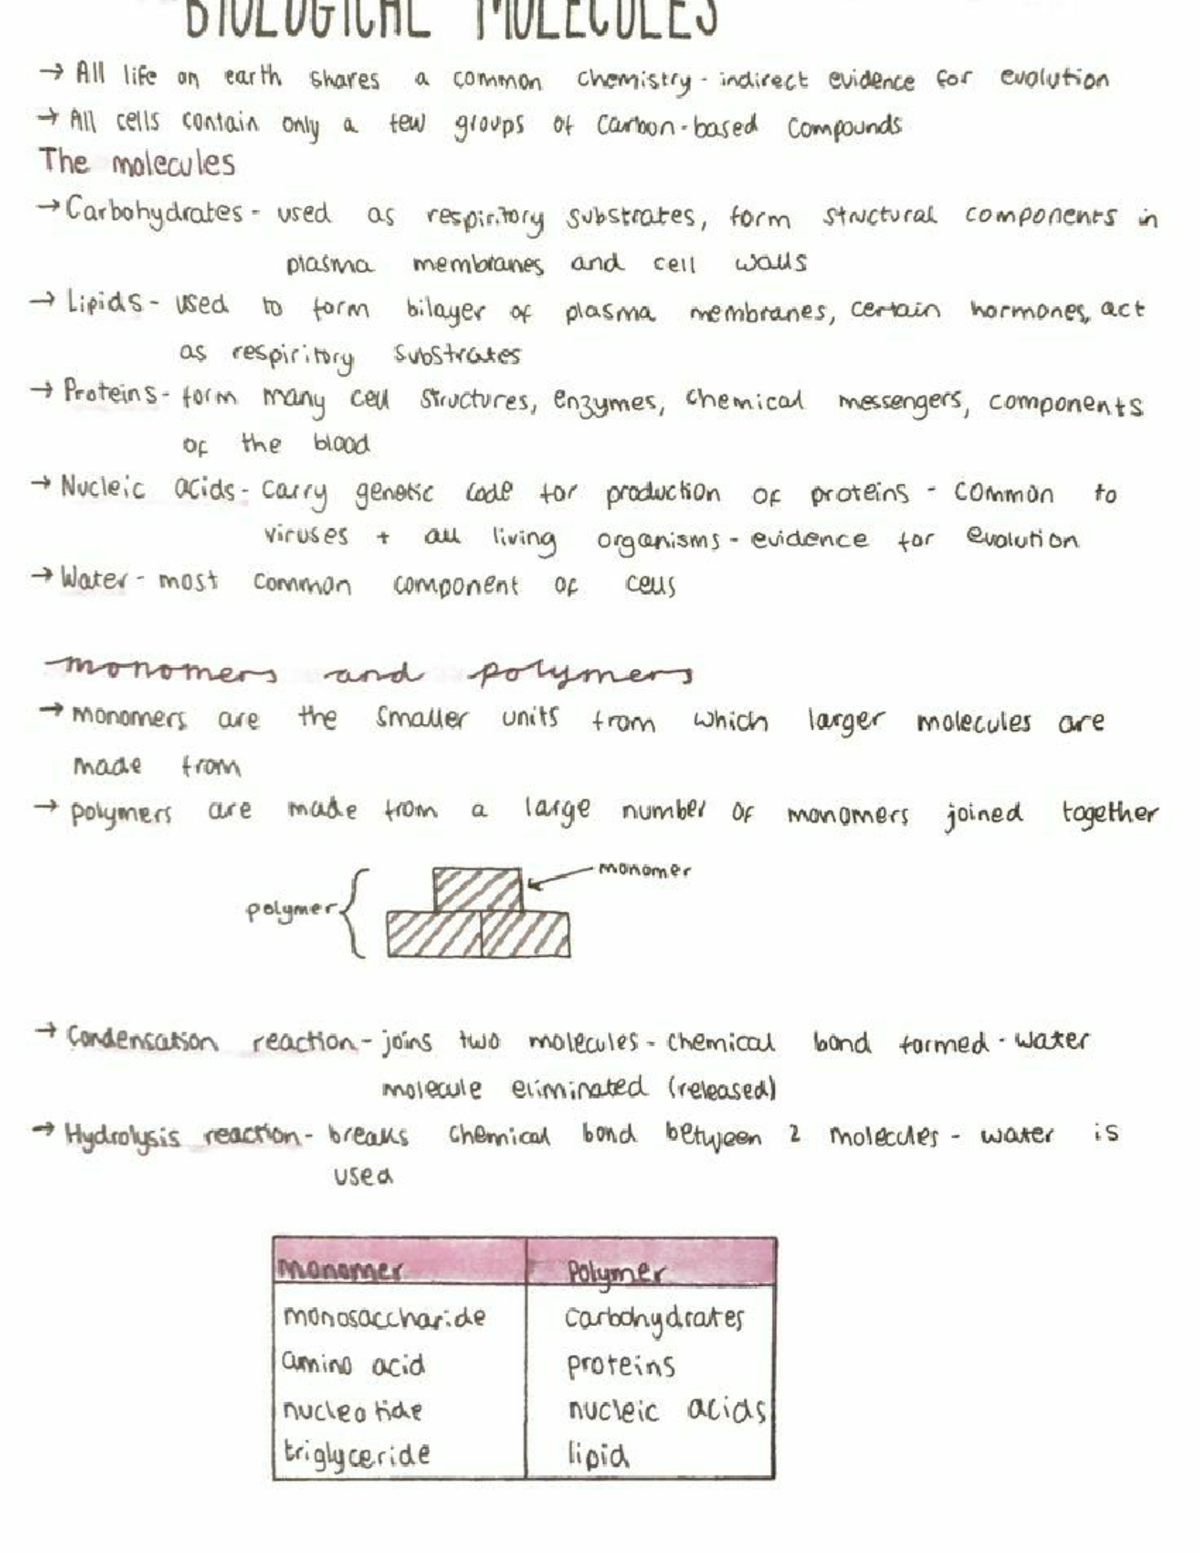 BIOLOGICAL MOLECULES
→ All life on earth shares a common chemistry - indirect evidence for evolution
→ All cells contain only a few groups of carbon-based compounds
The molecules
→ Carbohydrates - used as respiritory substrates, form structural components in
plasma membranes and cell walls
→ Lipids - used to form bilayer of plasma membranes, certain hormones, act
as respiritory substrates
→ Proteins - form many cell structures, enzymes, chemical messengers, components
of the blood
→ Nucleic acids - carry genetic code for production of proteins - common to
viruses + all living organisms - evidence for evolution
→ Water - most common component of cells
monomers and polymers
→ monomers are the smaller units from which larger molecules are
made from
→ polymers are made from a large number of monomers joined together
monomer
polymer
→ Condensation reaction - joins two molecules - chemical bond formed - water
molecule eliminated (released)
→ Hydrolysis reaction - breaks chemical bond between 2 molecules - water is
used
monomer Polymer
monosaccharide carbohydrates
amino acid proteins
nucleotide nucleic acids
triglyceride lipid